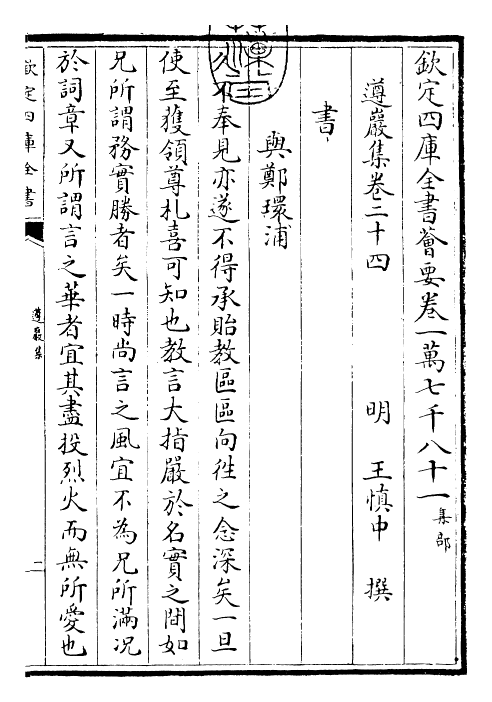 欽定四庫全書薈要卷一萬七千八十一 集部
遵巖集卷二十四
明 王慎中 撰
書
與鄭環浦
久不奉見亦遂不得承貽教區區向徃之念深矣一旦
使至獲領尊札喜可知也教言大指嚴於名實之間如
兄所謂務實勝者矣一時尚言之風宜不為兄所滿况
於詞章又所謂言之華者宜其盡投烈火而無所愛也
欽定四庫全書
遵巖集
二